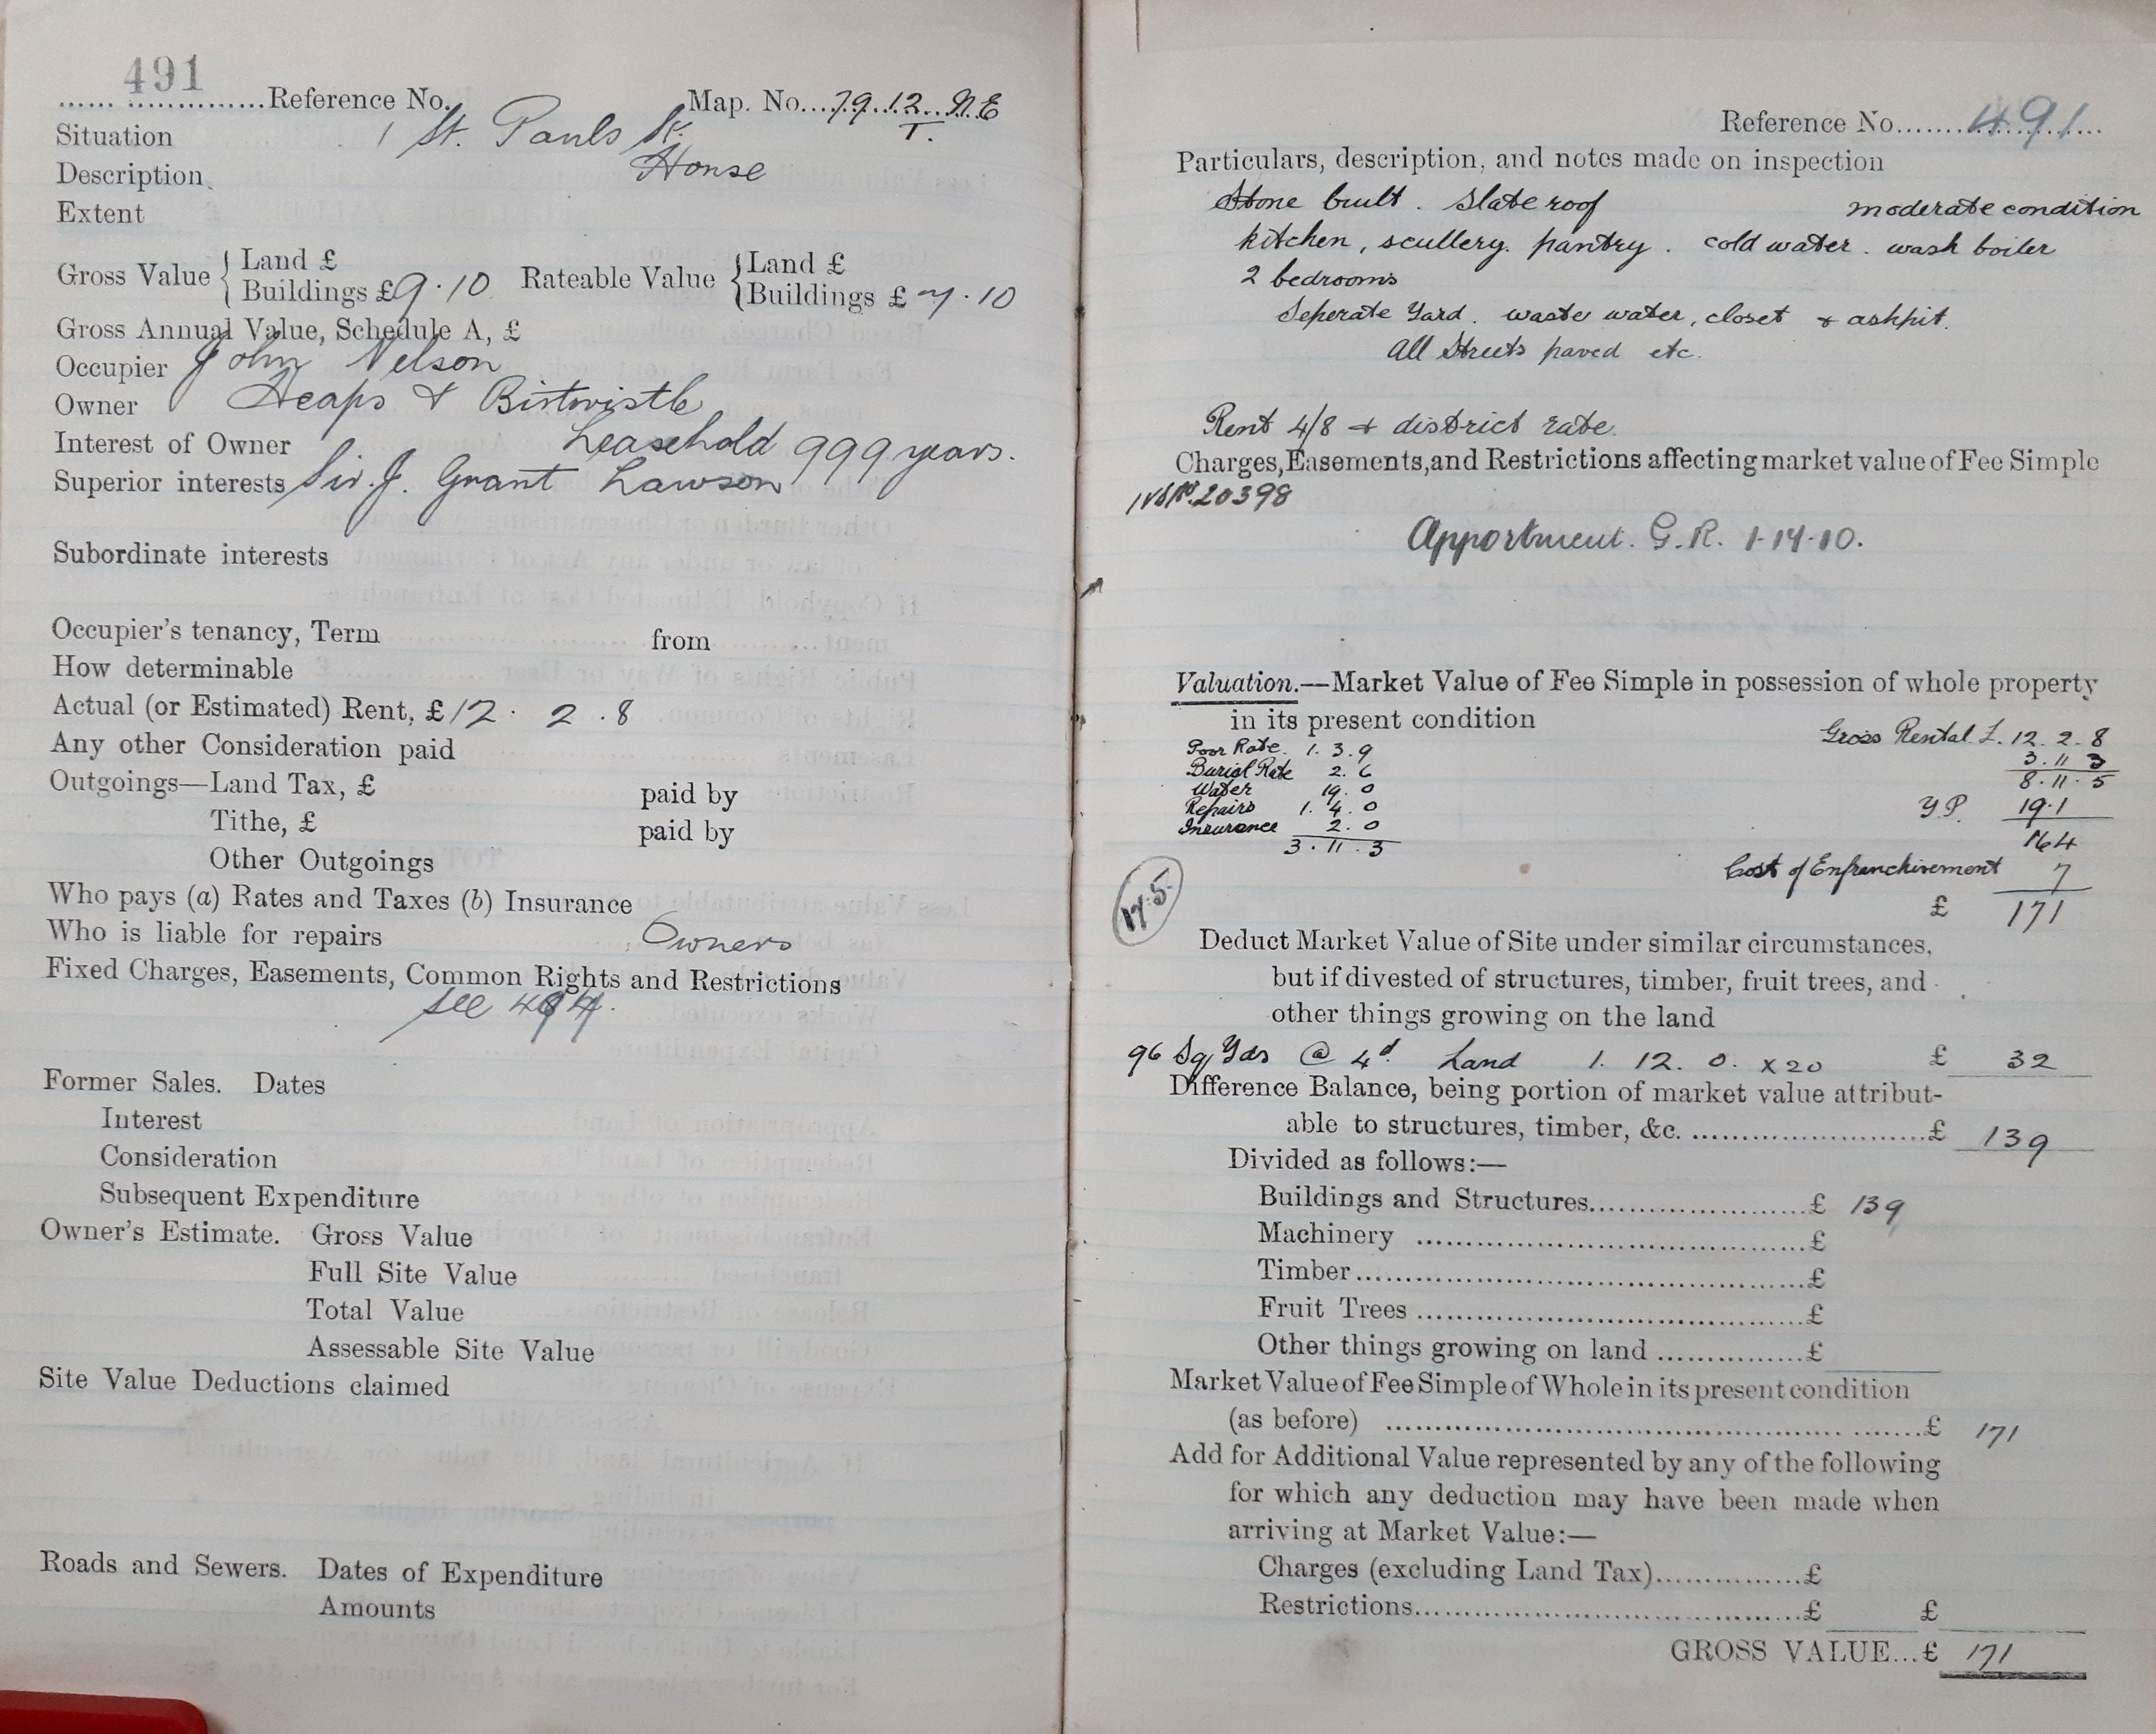 491
...... ..............Reference No. Map. No....79.12..N.E
T.
Situation 1 St. Pauls St.
Description House
Extent
Gross Value { Land £ Rateable Value { Land £
Buildings £ 9.10 Buildings £ 7.10
Gross Annual Value, Schedule A, £
Occupier John Nelson
Owner Heaps & Birtwistle
Interest of Owner Leasehold 999 years.
Superior interests Sir. J. Grant Lawson
Subordinate interests
Occupier's tenancy, Term from
How determinable
Actual (or Estimated) Rent, £ 12. 2. 8
Any other Consideration paid
Outgoings—Land Tax, £ paid by
Tithe, £ paid by
Other Outgoings
Who pays (a) Rates and Taxes (b) Insurance
Who is liable for repairs Owners
Fixed Charges, Easements, Common Rights and Restrictions
see
Former Sales. Dates
Interest
Consideration
Subsequent Expenditure
Owner's Estimate. Gross Value
Full Site Value
Total Value
Assessable Site Value
Site Value Deductions claimed
Roads and Sewers. Dates of Expenditure
Amounts
Reference No.......491...
Particulars, description, and notes made on inspection
Stone built. Slate roof moderate condition
kitchen, scullery. pantry. cold water. wash boiler
2 bedrooms
Seperate Yard. waste water, closet & ashpit.
All Streets paved etc.
Rent 4/8 + district rate.
Charges, Easements, and Restrictions affecting market value of Fee Simple
20398
Apportment. G.R. 1-14-10.
Valuation.—Market Value of Fee Simple in possession of whole property
in its present condition Gross Rental £. 12. 2. 8
Poor Rate. 1. 3. 9 3. 11. 3
Burial Rate 2. 6 8. 11. 5
Water 19. 0 Y.P. 19.1
Repairs 1. 4. 0
Insurance 2. 0 164
3. 11. 3
Cost of Enfranchisement 7
£ 171
175
Deduct Market Value of Site under similar circumstances,
but if divested of structures, timber, fruit trees, and
other things growing on the land
96 Sq Yds @ 4d Land 1. 12. 0. x 20 £ 32
Difference Balance, being portion of market value attribut-
able to structures, timber, &c. ..........................£ 139
Divided as follows:—
Buildings and Structures.......................£ 139
Machinery .........................................£
Timber................................................£
Fruit Trees .........................................£
Other things growing on land ...............£
Market Value of Fee Simple of Whole in its present condition
(as before) ......................................................£ 171
Add for Additional Value represented by any of the following
for which any deduction may have been made when
arriving at Market Value:—
Charges (excluding Land Tax)...............£
Restrictions.........................................£ £
GROSS VALUE...£ 171